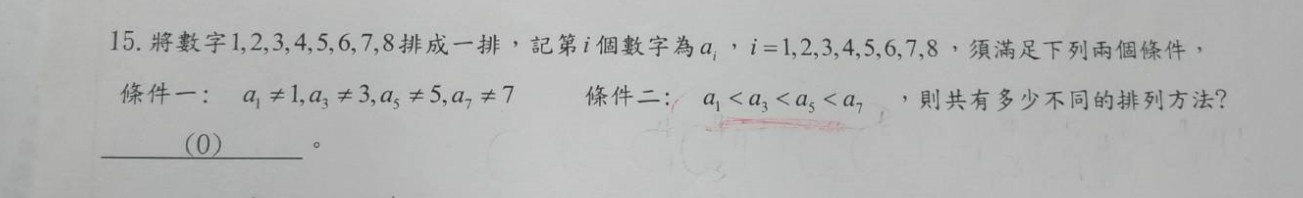 15. 將數字1,2,3,4,5,6,7,8排成一排，記第i個數字為a_i，i=1,2,3,4,5,6,7,8，須滿足下列兩個條件，
條件一： a_1≠1,a_3≠3,a_5≠5,a_7≠7 條件二： a_1<a_3<a_5<a_7 ，則共有多少不同的排列方法?
(O) 。